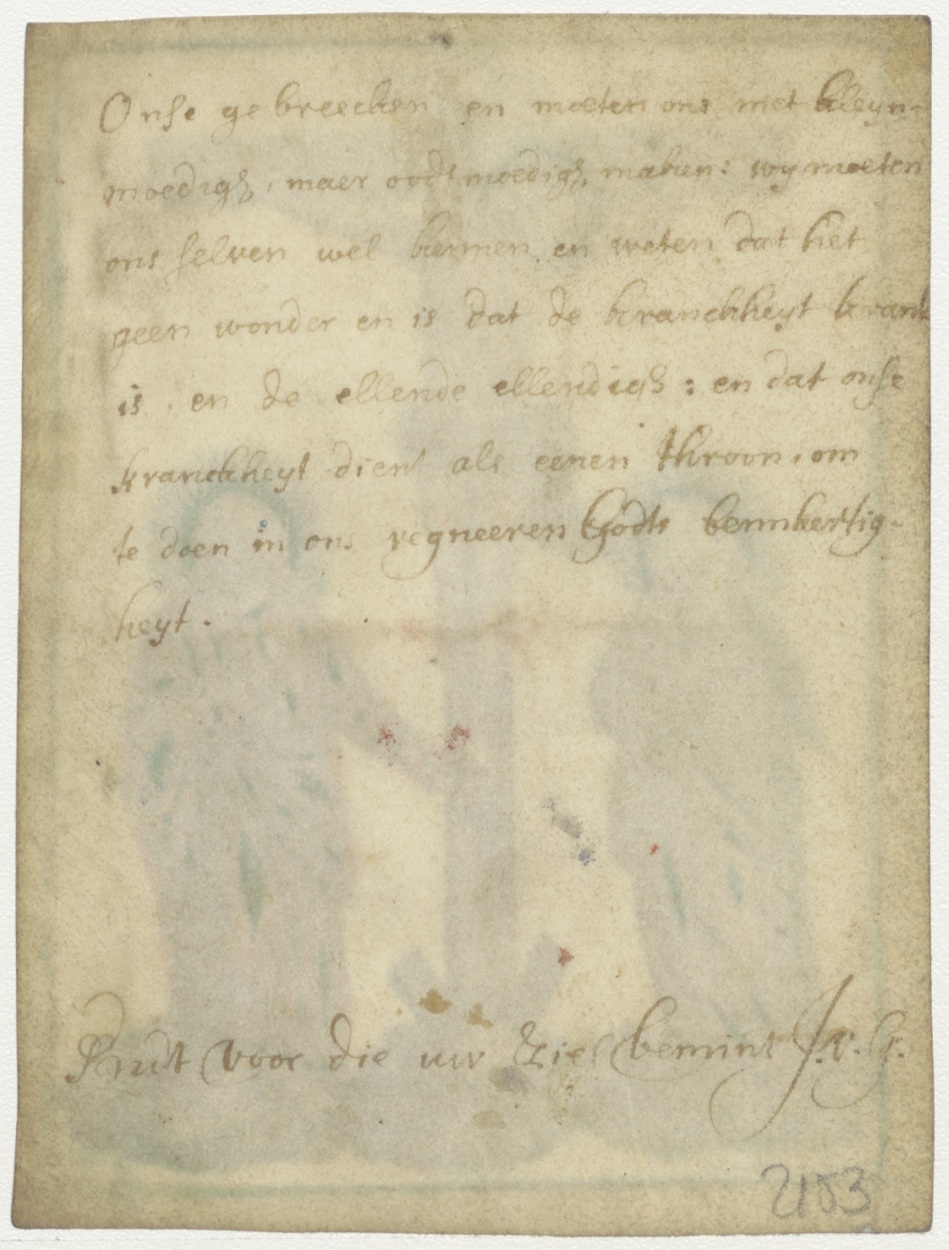 Onse gebreecken en moeten ons niet kleyn-
moedigh, maer oodtmoedigh, maken: wy moeten
ons selven wel kennen en weten dat het
geen wonder en is dat de kranckheyt kranck
is, en de ellende ellendigh: en dat onse
kranckheyt dient als eenen throon, om
te doen in ons regneeren Godts bermhertig-
heyt.
Bidt voor die uw ziel bemint J.v.G.
2183